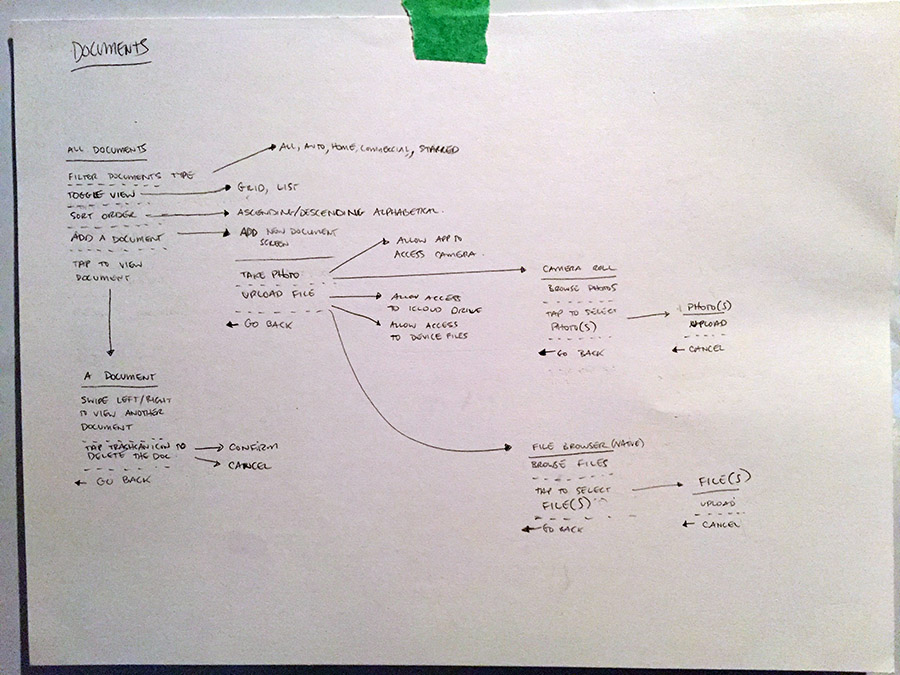 DOCUMENTS
ALL DOCUMENTS
FILTER DOCUMENTS TYPE
ALL, AUTO, HOME, COMMERCIAL, STARRED
TOGGLE VIEW
GRID, LIST
SORT ORDER
ASCENDING/DESCENDING ALPHABETICAL.
ADD A DOCUMENT
ADD NEW DOCUMENT
SCREEN
TAP TO VIEW
DOCUMENT
TAKE PHOTO
UPLOAD FILE
GO BACK
ALLOW APP TO
ACCESS CAMERA.
ALLOW ACCESS
TO ICLOUD DRIVE
ALLOW ACCESS
TO DEVICE FILES
CAMERA ROLL
BROWSE PHOTOS
TAP TO SELECT
PHOTO(S)
GO BACK
PHOTO(S)
UPLOAD
CANCEL
A DOCUMENT
SWIPE LEFT/RIGHT
TO VIEW ANOTHER
DOCUMENT
TAP TRASHCAN ICON TO
DELETE THE DOC.
CONFIRM
CANCEL
GO BACK
FILE BROWSER (NATIVE)
BROWSE FILES
TAP TO SELECT
FILE(S)
GO BACK
FILE(S)
UPLOAD
CANCEL